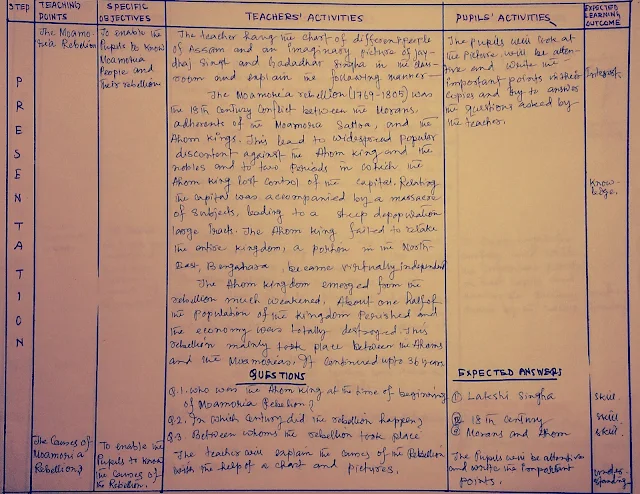 STEP
TEACHING POINTS
SPECIFIC OBJECTIVES
TEACHERS' ACTIVITIES
PUPILS' ACTIVITIES
EXPECTED LEARNING OUTCOME
PRESENTATION
The Moamo-
ria Rebelion
To enable the
Pupils to know
Moamoria
People and
their rebellion
The teacher hang the chart of different people
of Assam and an imaginary picture of Joy-
dhaj Singh and Gadadhar Singha in the class
room and explain the following manner—
The Moamoria rebellion (1769-1805) was
the 18th Century conflict between the Morans,
adherents of the Moamoria Sattra, and the
Ahom kings. This lead to widespread popular
discontent against the Ahom king and the
nobles and to two Periods in which the
Ahom king lost control of the capital. Retaking
the capital was accompanied by a massacre
of Subjects, leading to a steep depopulation
large tracts. The Ahom king failed to retake
the entire kingdom, a portion in the North-
East, Bengmara, became virtually independent
The Ahom kingdom emerged from the
rebellion much weakened. About one half of
the population of the kingdom Perished and
the economy was totally destroyed. This
rebellion mainly took place between the Ahoms
and the Moamorias. It continued upto 36 years
QUESTIONS
Q.1. Who was the Ahom king at the time of beginning
of Moamoria Rebelion?
Q.2. In which Century did the rebellion happen?
Q.3 Between whom the rebellion took place
The pupils will look at
the Picture, will be atten-
tive and write the
important points in their
copies and try to answer
the questions asked by
the teacher.
EXPECTED ANSWERS
① Lakshi Singha
② 18th Century
③ Morans and Ahom
Interest
Know-
ledge,
Skill
Skill
Skill
The Causes of
Moamoria
Rebellion?
To enable the
Pupils to know
the Causes of
the Rebelion.
The teacher will explain the causes of the Rebellion
with the help of a chart and pictures.
The Pupils will be attentive
and write the important
points.
Under-
standing